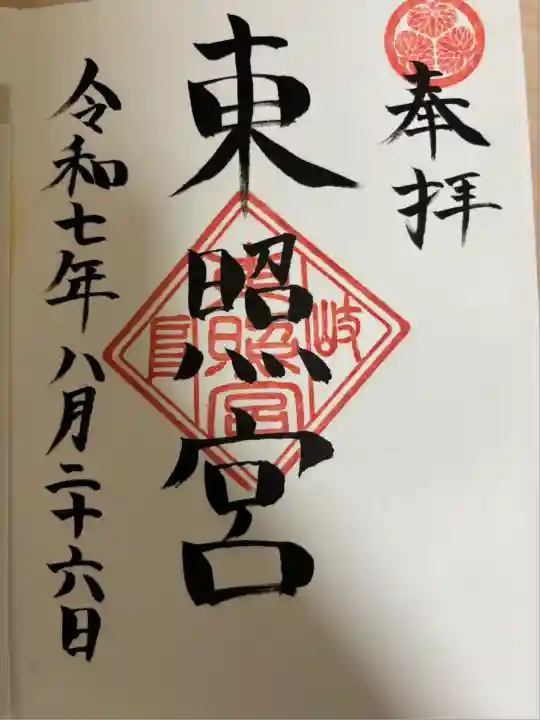 奉拝
東照宮
岐 東照宮 長
令和七年八月二十六日